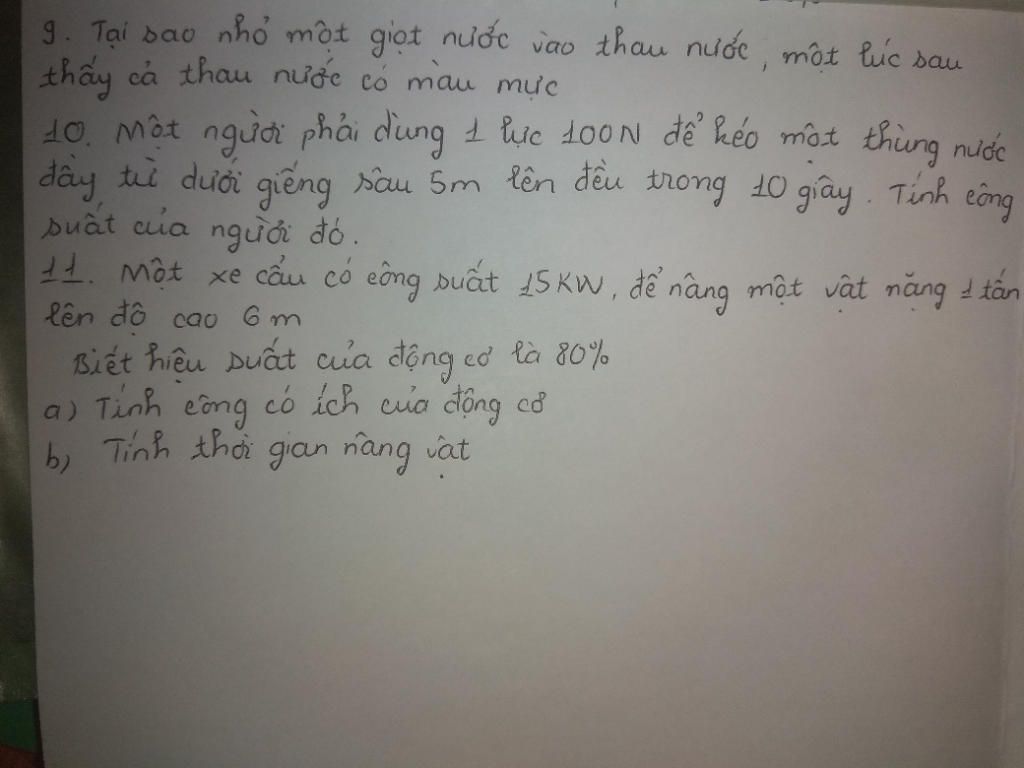 9. Tại sao nhỏ một giọt nước vào thau nước, một lúc sau
thấy cả thau nước có màu mực
10. Một người phải dùng 1 lực 100N để kéo một thùng nước
đầy từ dưới giếng sâu 5m lên đều trong 10 giây. Tính công
suất của người đó.
11. Một xe cẩu có công suất 15KW, để nâng một vật nặng 1 tấn
lên độ cao 6m
Biết hiệu suất của động cơ là 80%
a) Tính công có ích của động cơ
b) Tính thời gian nâng vật